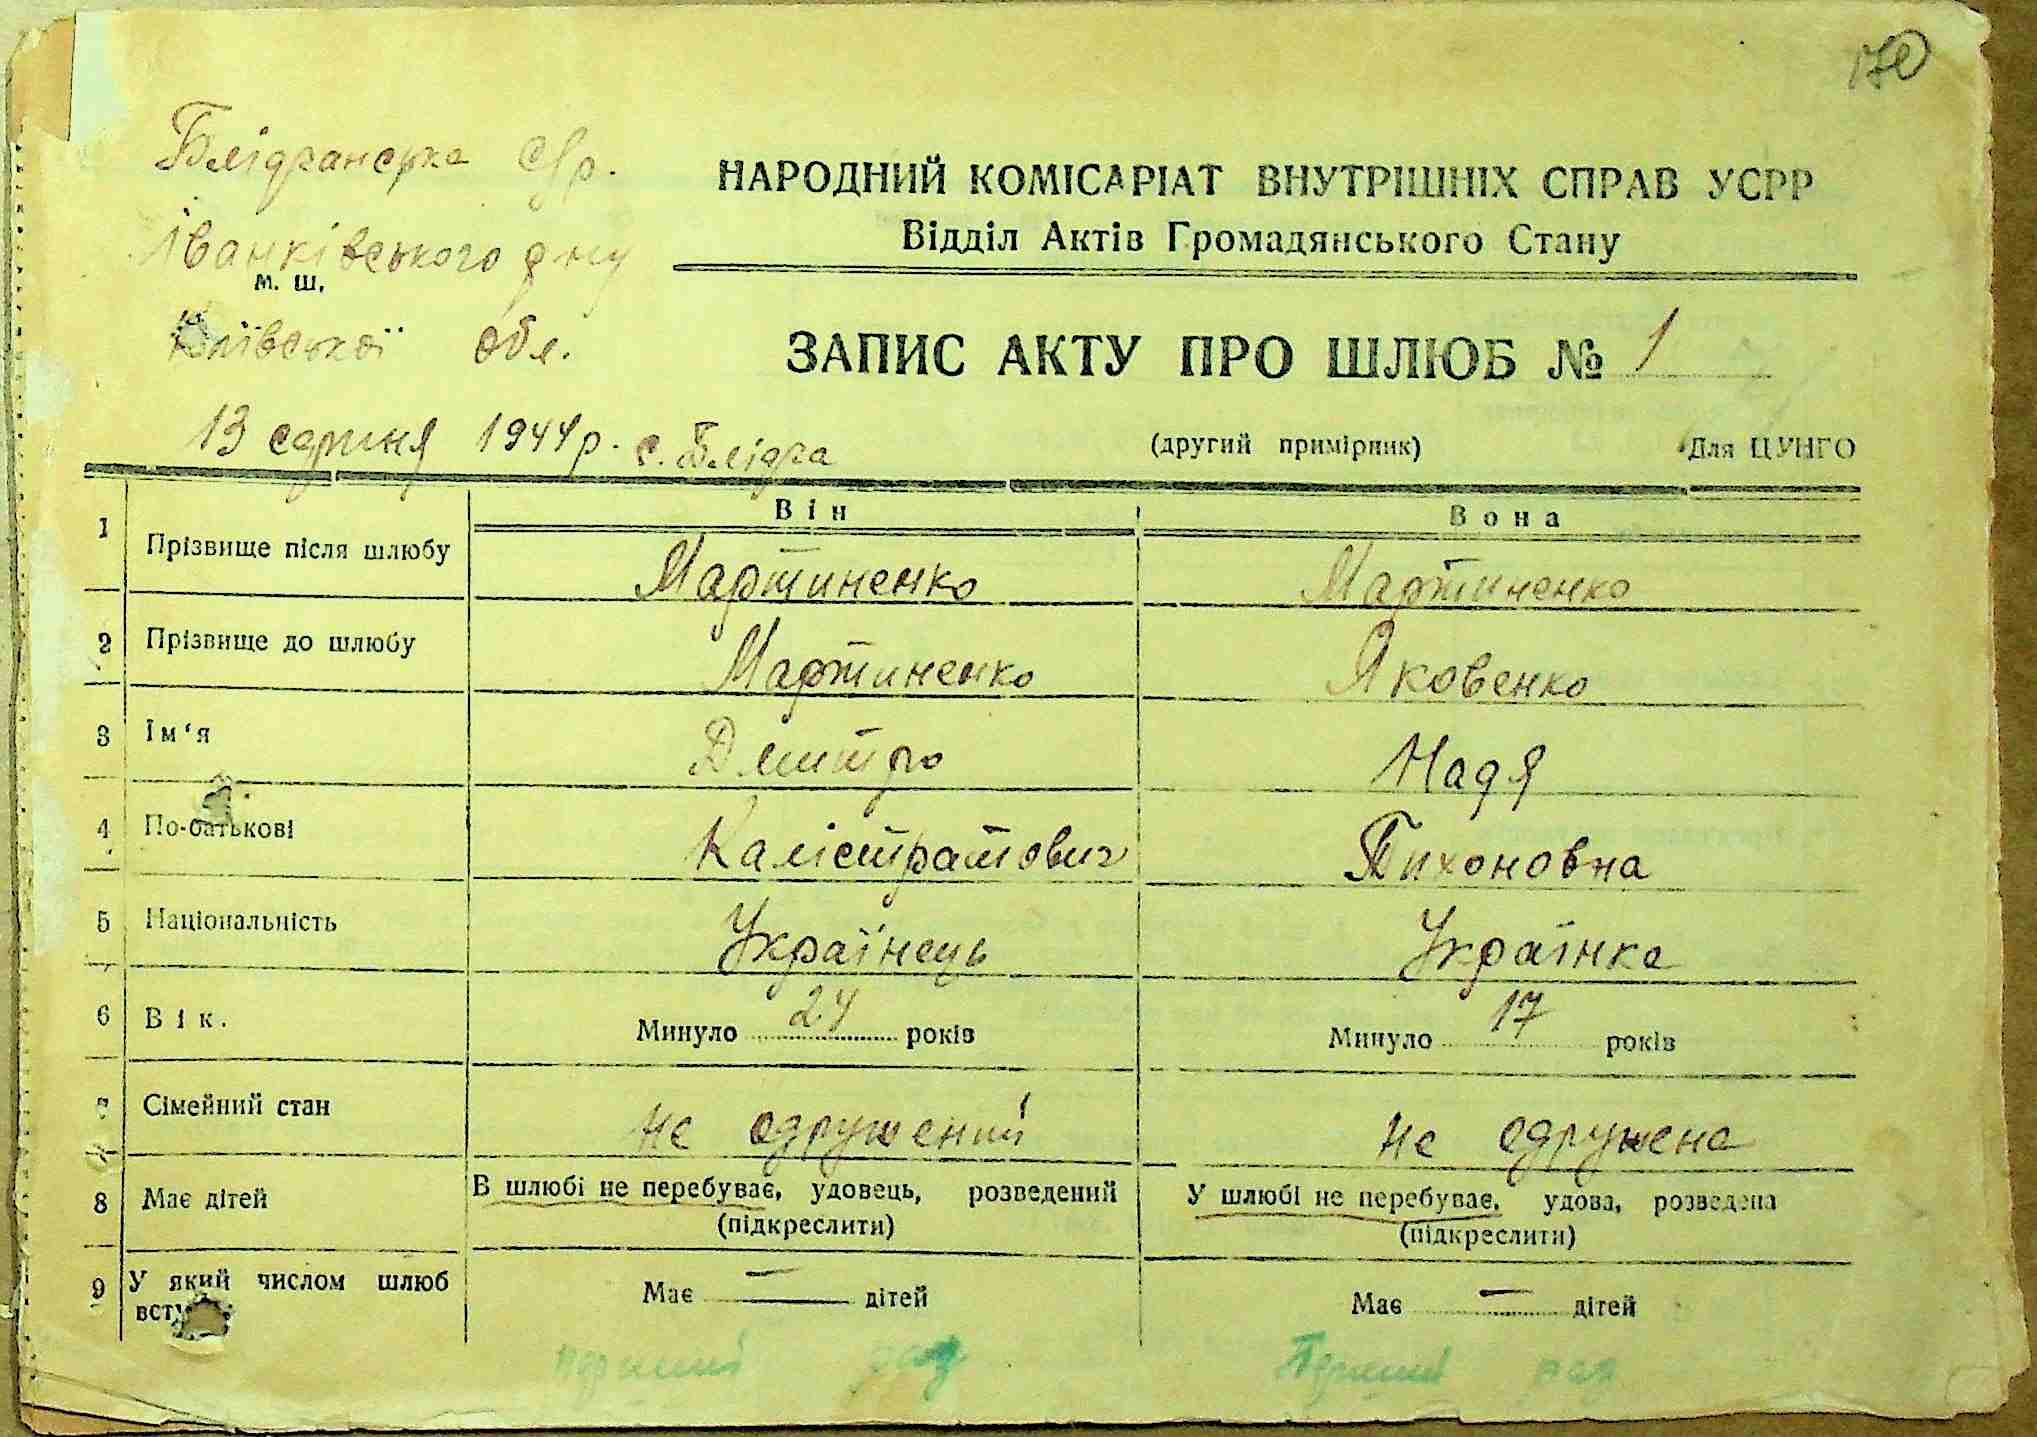 170
Блідчанська с/р.
НАРОДНИЙ КОМІСАРІАТ ВНУТРІШНІХ СПРАВ УСРР
Відділ Актів Громадянського Стану
Іванківського р-ну
м. ш.
Київської обл.
ЗАПИС АКТУ ПРО ШЛЮБ № 1
13 серпня 1944 р. с. Блідча
(другий примірник) Для ЦУНГО
Він Вона
1 Прізвище після шлюбу Мартиненко Мартиненко
2 Прізвище до шлюбу Мартиненко Яковенко
3 Ім‘я Дмитро Надя
4 По-батькові Калістратович Тихоновна
5 Національність Українець Українка
6 Вік. Минуло 24 років Минуло 17 років
7 Сімейний стан не одружений не одружена
8 Має дітей В шлюбі не перебуває, удовець, розведений У шлюбі не перебуває, удова, розведена
(підкреслити) (підкреслити)
9 У який числом шлюб Має — дітей Має — дітей
перший раз Перший раз